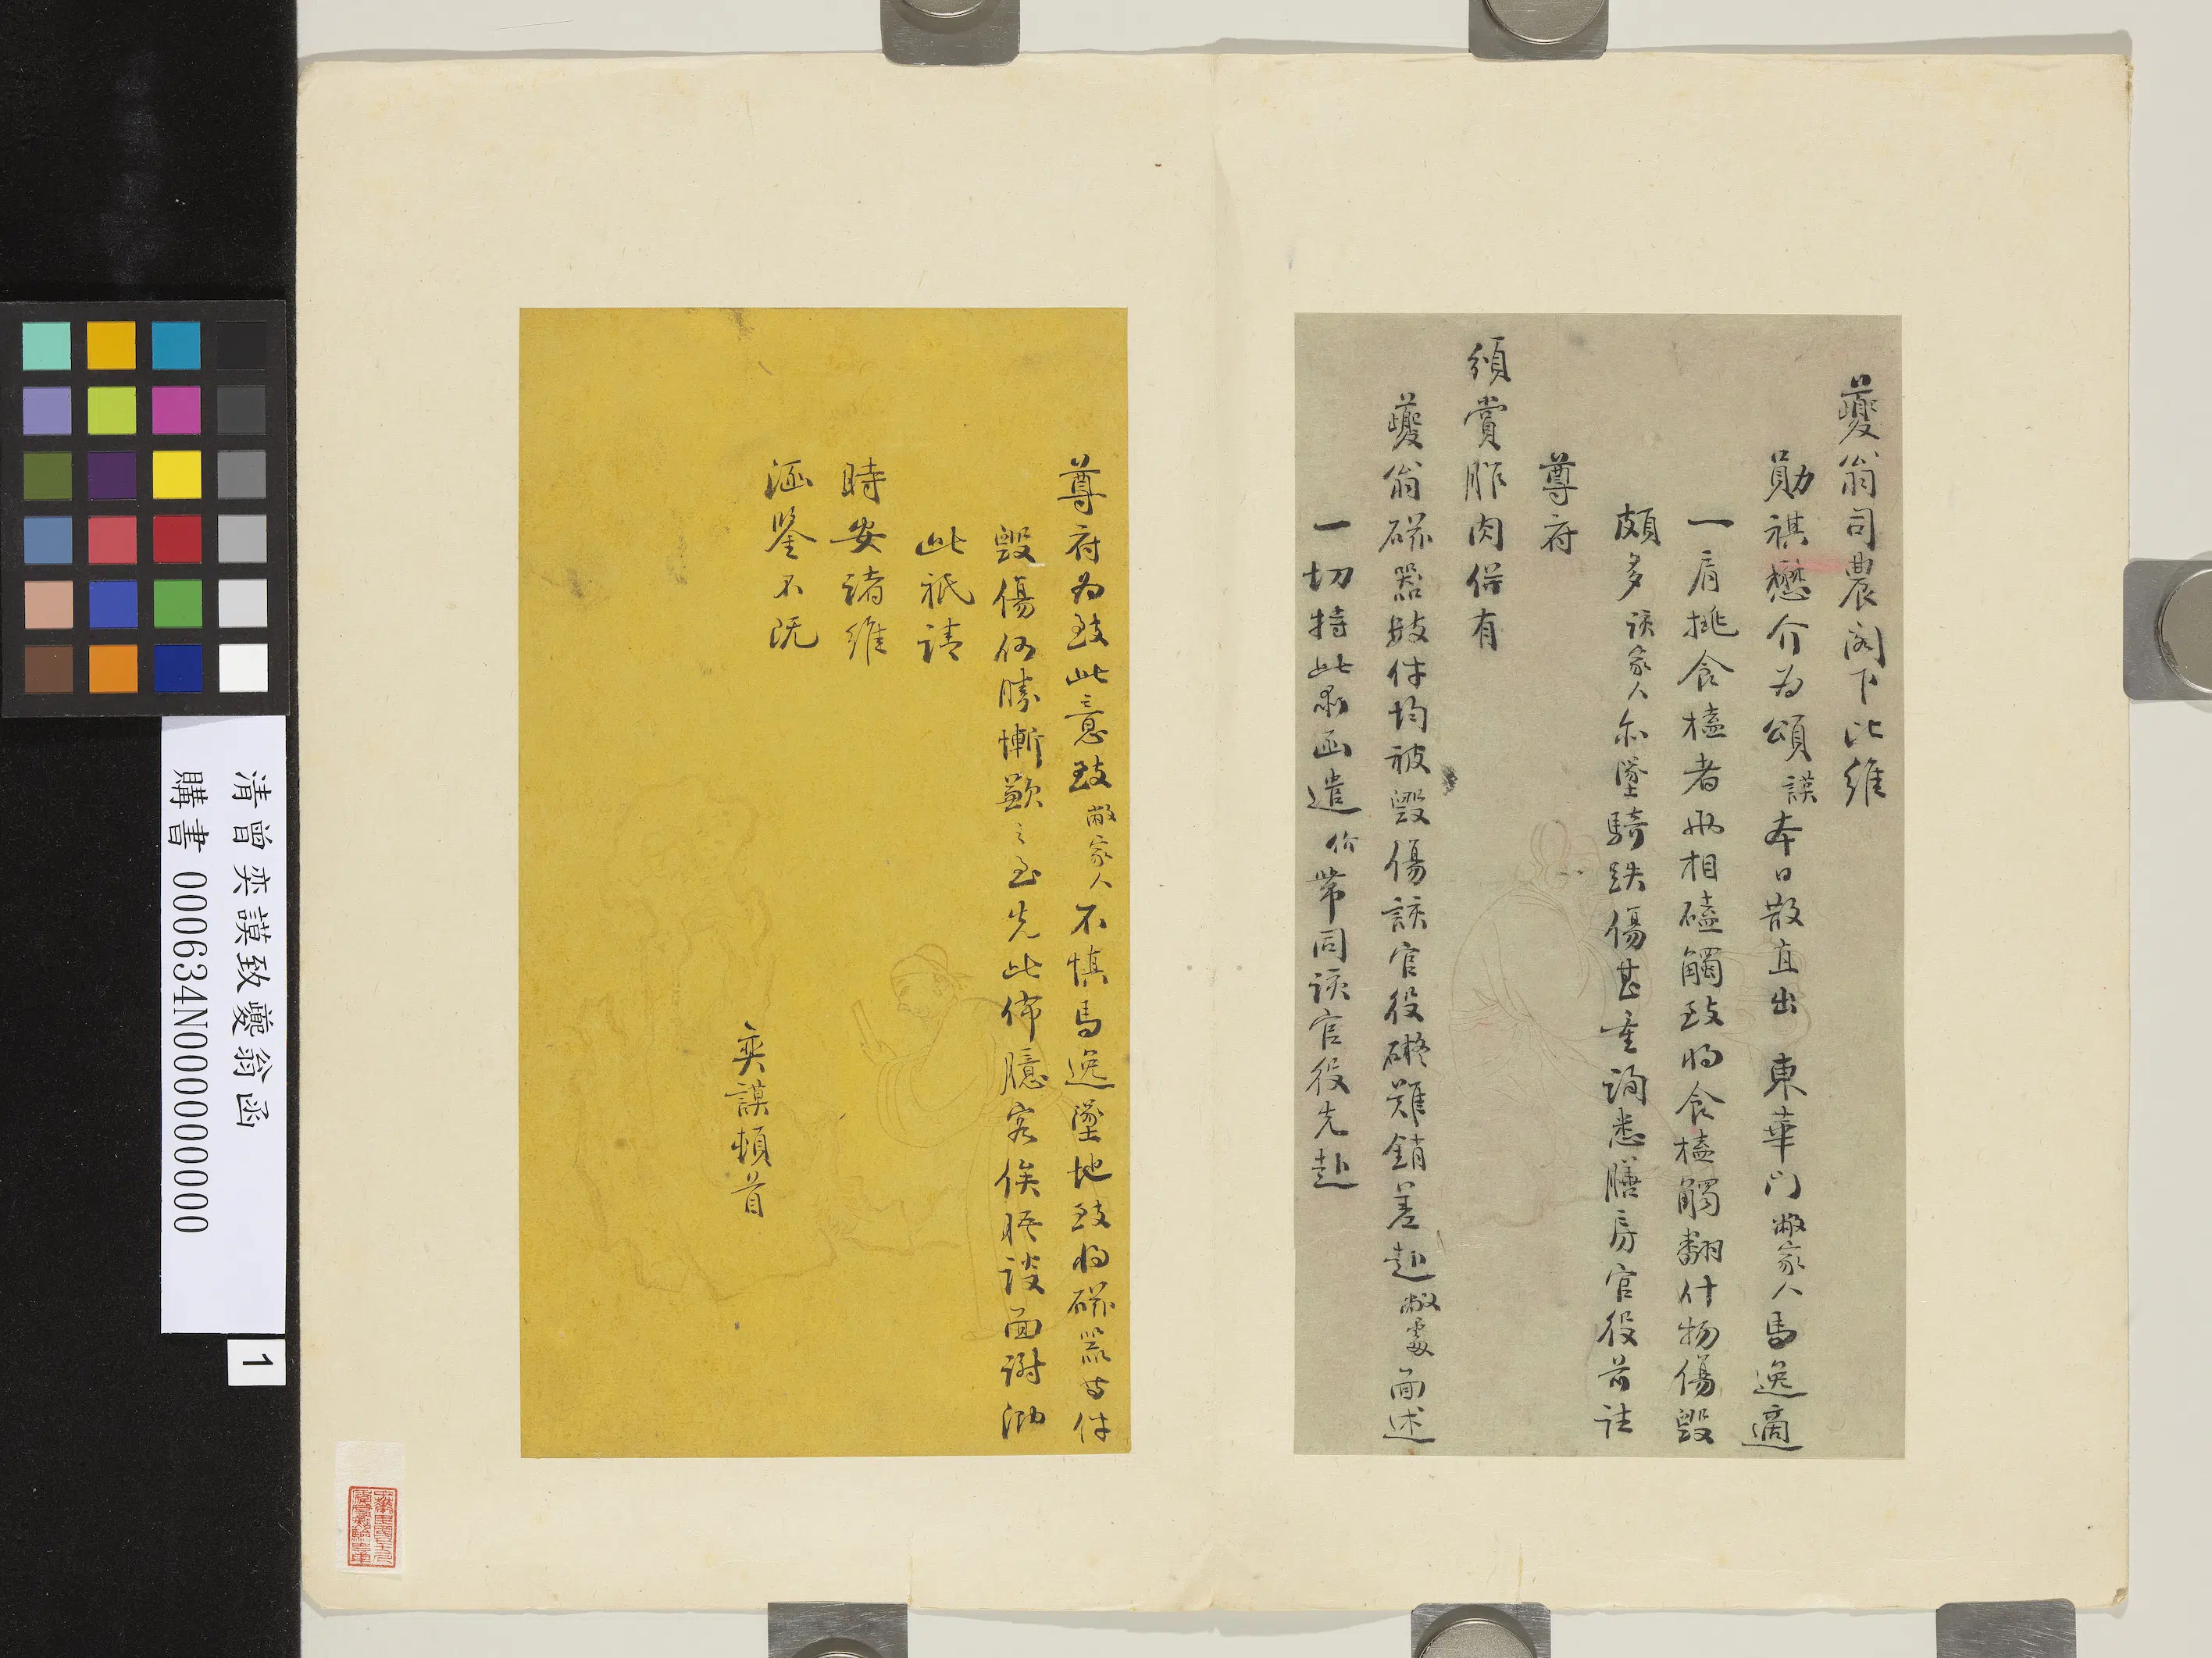 夔翁司農閣下比維
勛祺懋介為頌謨本日散直出 東華門敝家人馬逸適
一肩挑食榼者兩相磕觸致將食榼觸翻什物傷毀
頗多該家人亦墜騎跌傷甚重詢悉膳房官役前詣
尊府
頒賞胙肉併有
夔翁磁器數件均被毀傷該官役礙難銷差赴敝處面述
一切特此肅函遣价帶同該官役先赴
尊府為致此意致敝家人不慎馬逸墜地致將磁器等件
毀傷何勝慚歉之至先此佈臆容俟晤談面謝泐
此祇請
時安諸維
涵鑒不既
奕謨頓首
清曾奕謨致夔翁函
購書 000634N000000000
1